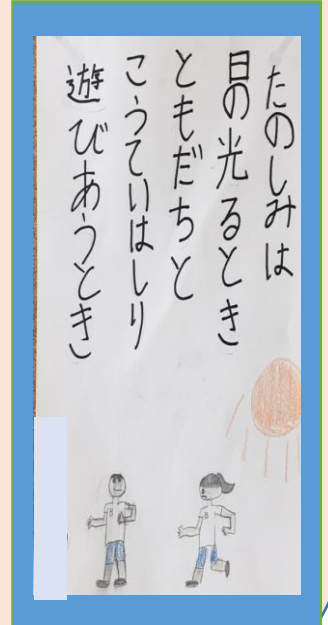 たのしみは
日の光るとき
ともだちと
こうていはしり
遊びあうとき